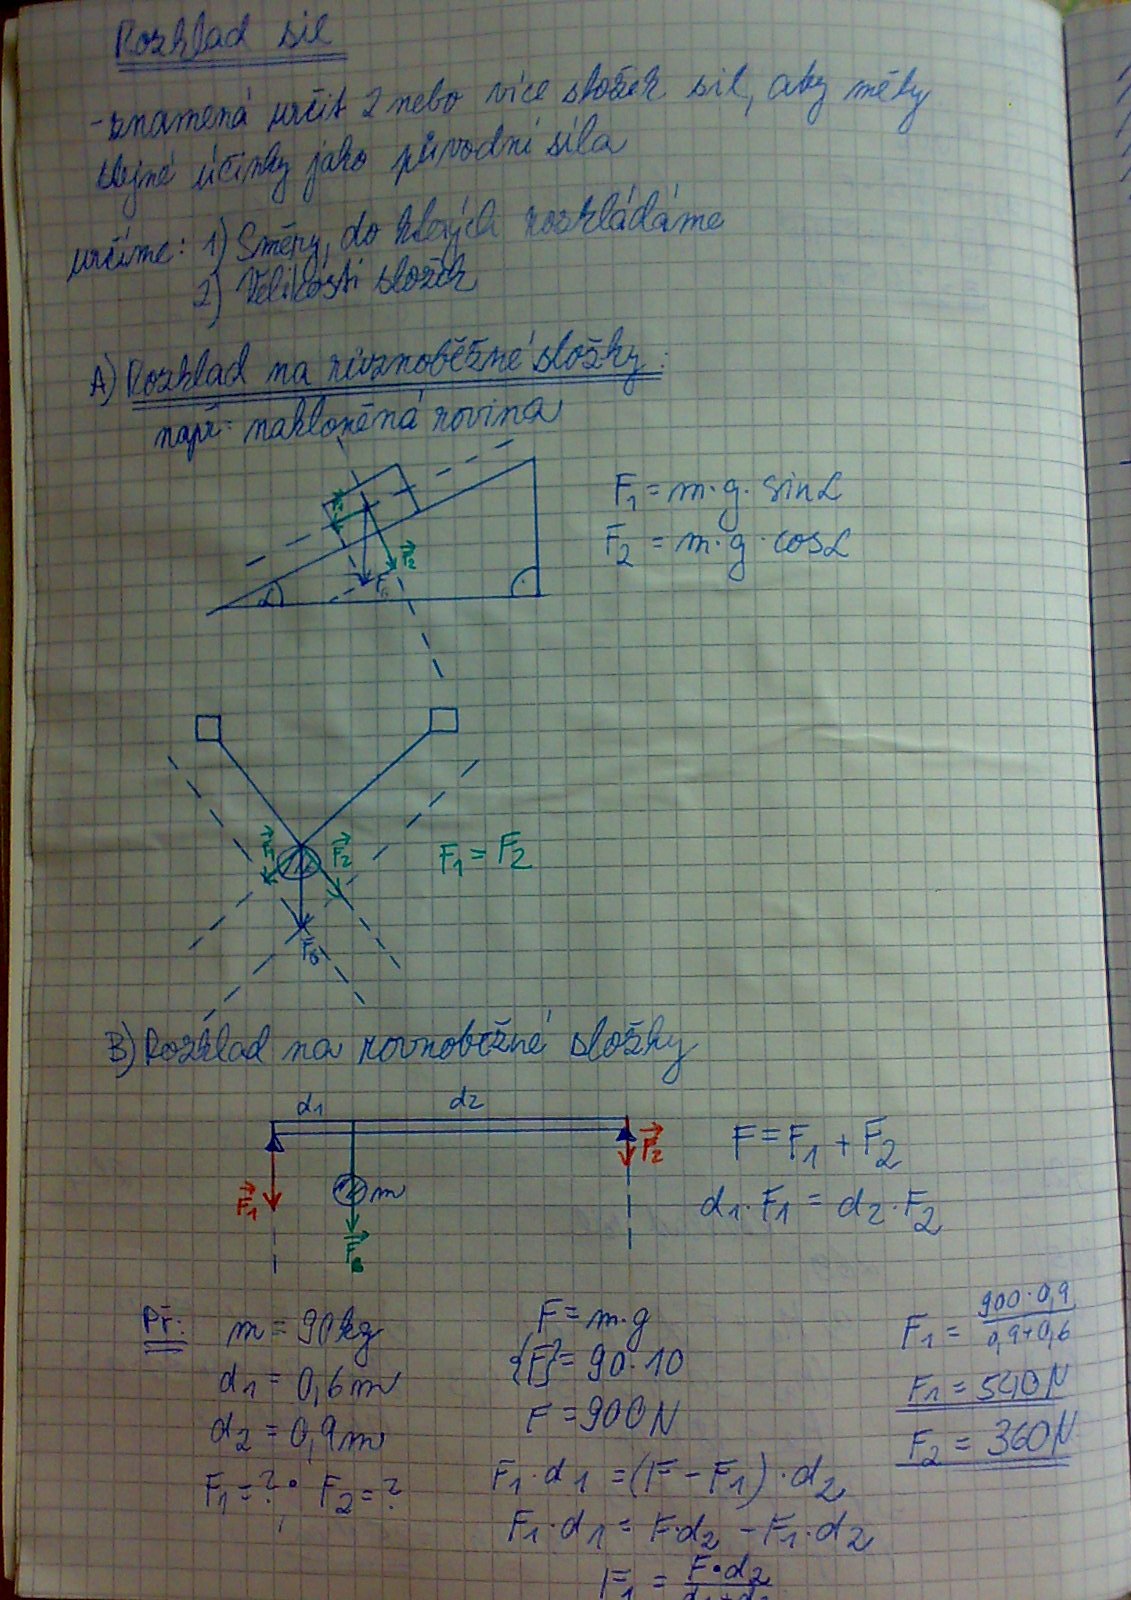 Rozklad sil
-znamená určit 2 nebo více složek sil, aby měly
stejné účinky jako původní síla
určíme: 1) Směry, do kterých rozkládáme
2) Velikosti složek
A) Rozklad na různoběžné složky:
např: nakloněná rovina
F₁ = m·g·sinα
F₂ = m·g·cosα
F₁
F₂
F_G
α
F₁
F₂
F₁ = F₂
F_G
B) Rozklad na rovnoběžné složky
d₁ d₂
F₁
m
F_G
F₂
F = F₁ + F₂
d₁·F₁ = d₂·F₂
Př: m = 90kg
d₁ = 0,6m
d₂ = 0,9m
F₁ = ?; F₂ = ?
F = m·g
{F} = 90·10
F = 900N
F₁·d₁ = (F - F₁)·d₂
F₁·d₁ = F·d₂ - F₁·d₂
F₁ = F·d₂ / d₁+d₂
F₁ = 900·0,9 / 0,9+0,6
F₁ = 540N
F₂ = 360N